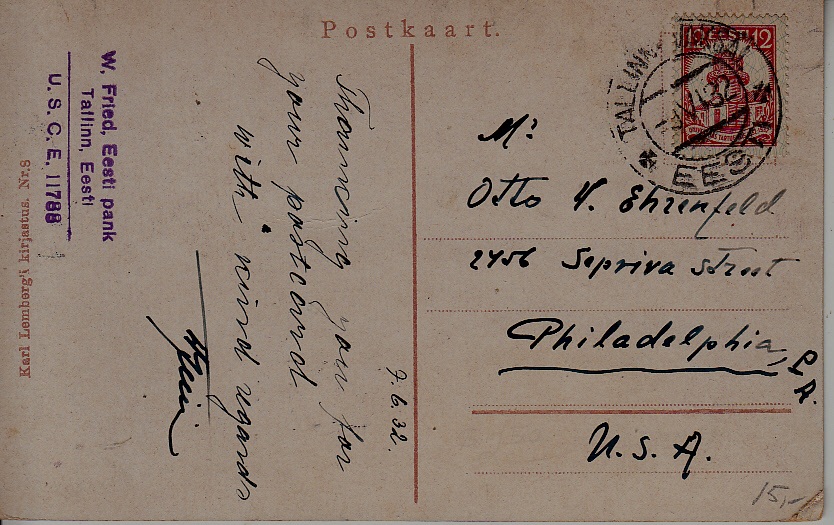 Postkaart.
W. Fried, Eesti pank
Tallinn, Eesti
U. S. C. E. 11788
Karl Lemberg'i kirjastus. Nr.8
Thanking you for
your postcard
with kind regards
7.6.32.
12 12
TALLINN
EESTI
Mr
Otto V. Ehrenfeld
2456 Sepriva Street
Philadelphia,
PA.
U.S.A.
15,-